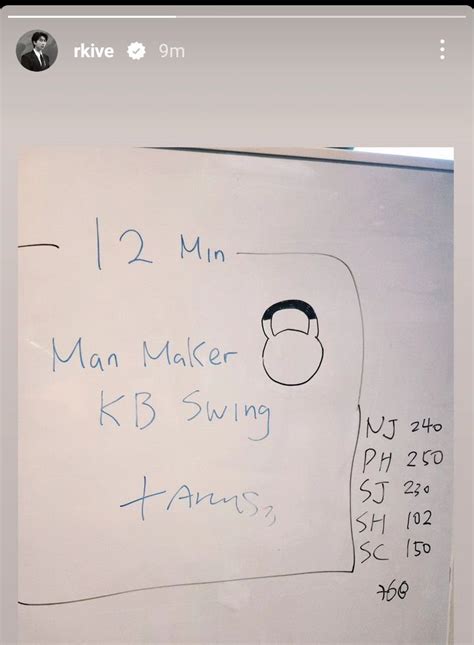 rkive 9m
12 Min
Man Maker
KB Swing
+Arms
NJ 240
PH 250
SJ 230
SH 102
SC 150